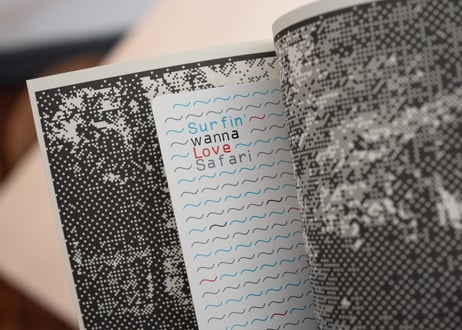 Surfin'
wanna
Love
Safari